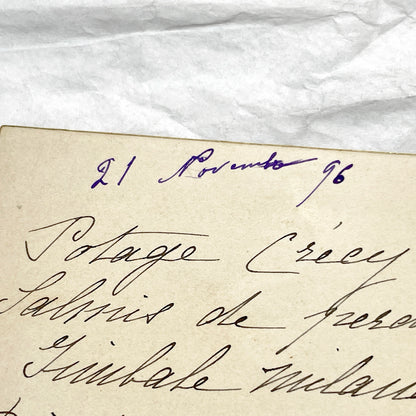 21 Novembre 96
Potage Crécy
Salmis de perd
Timbale Milan